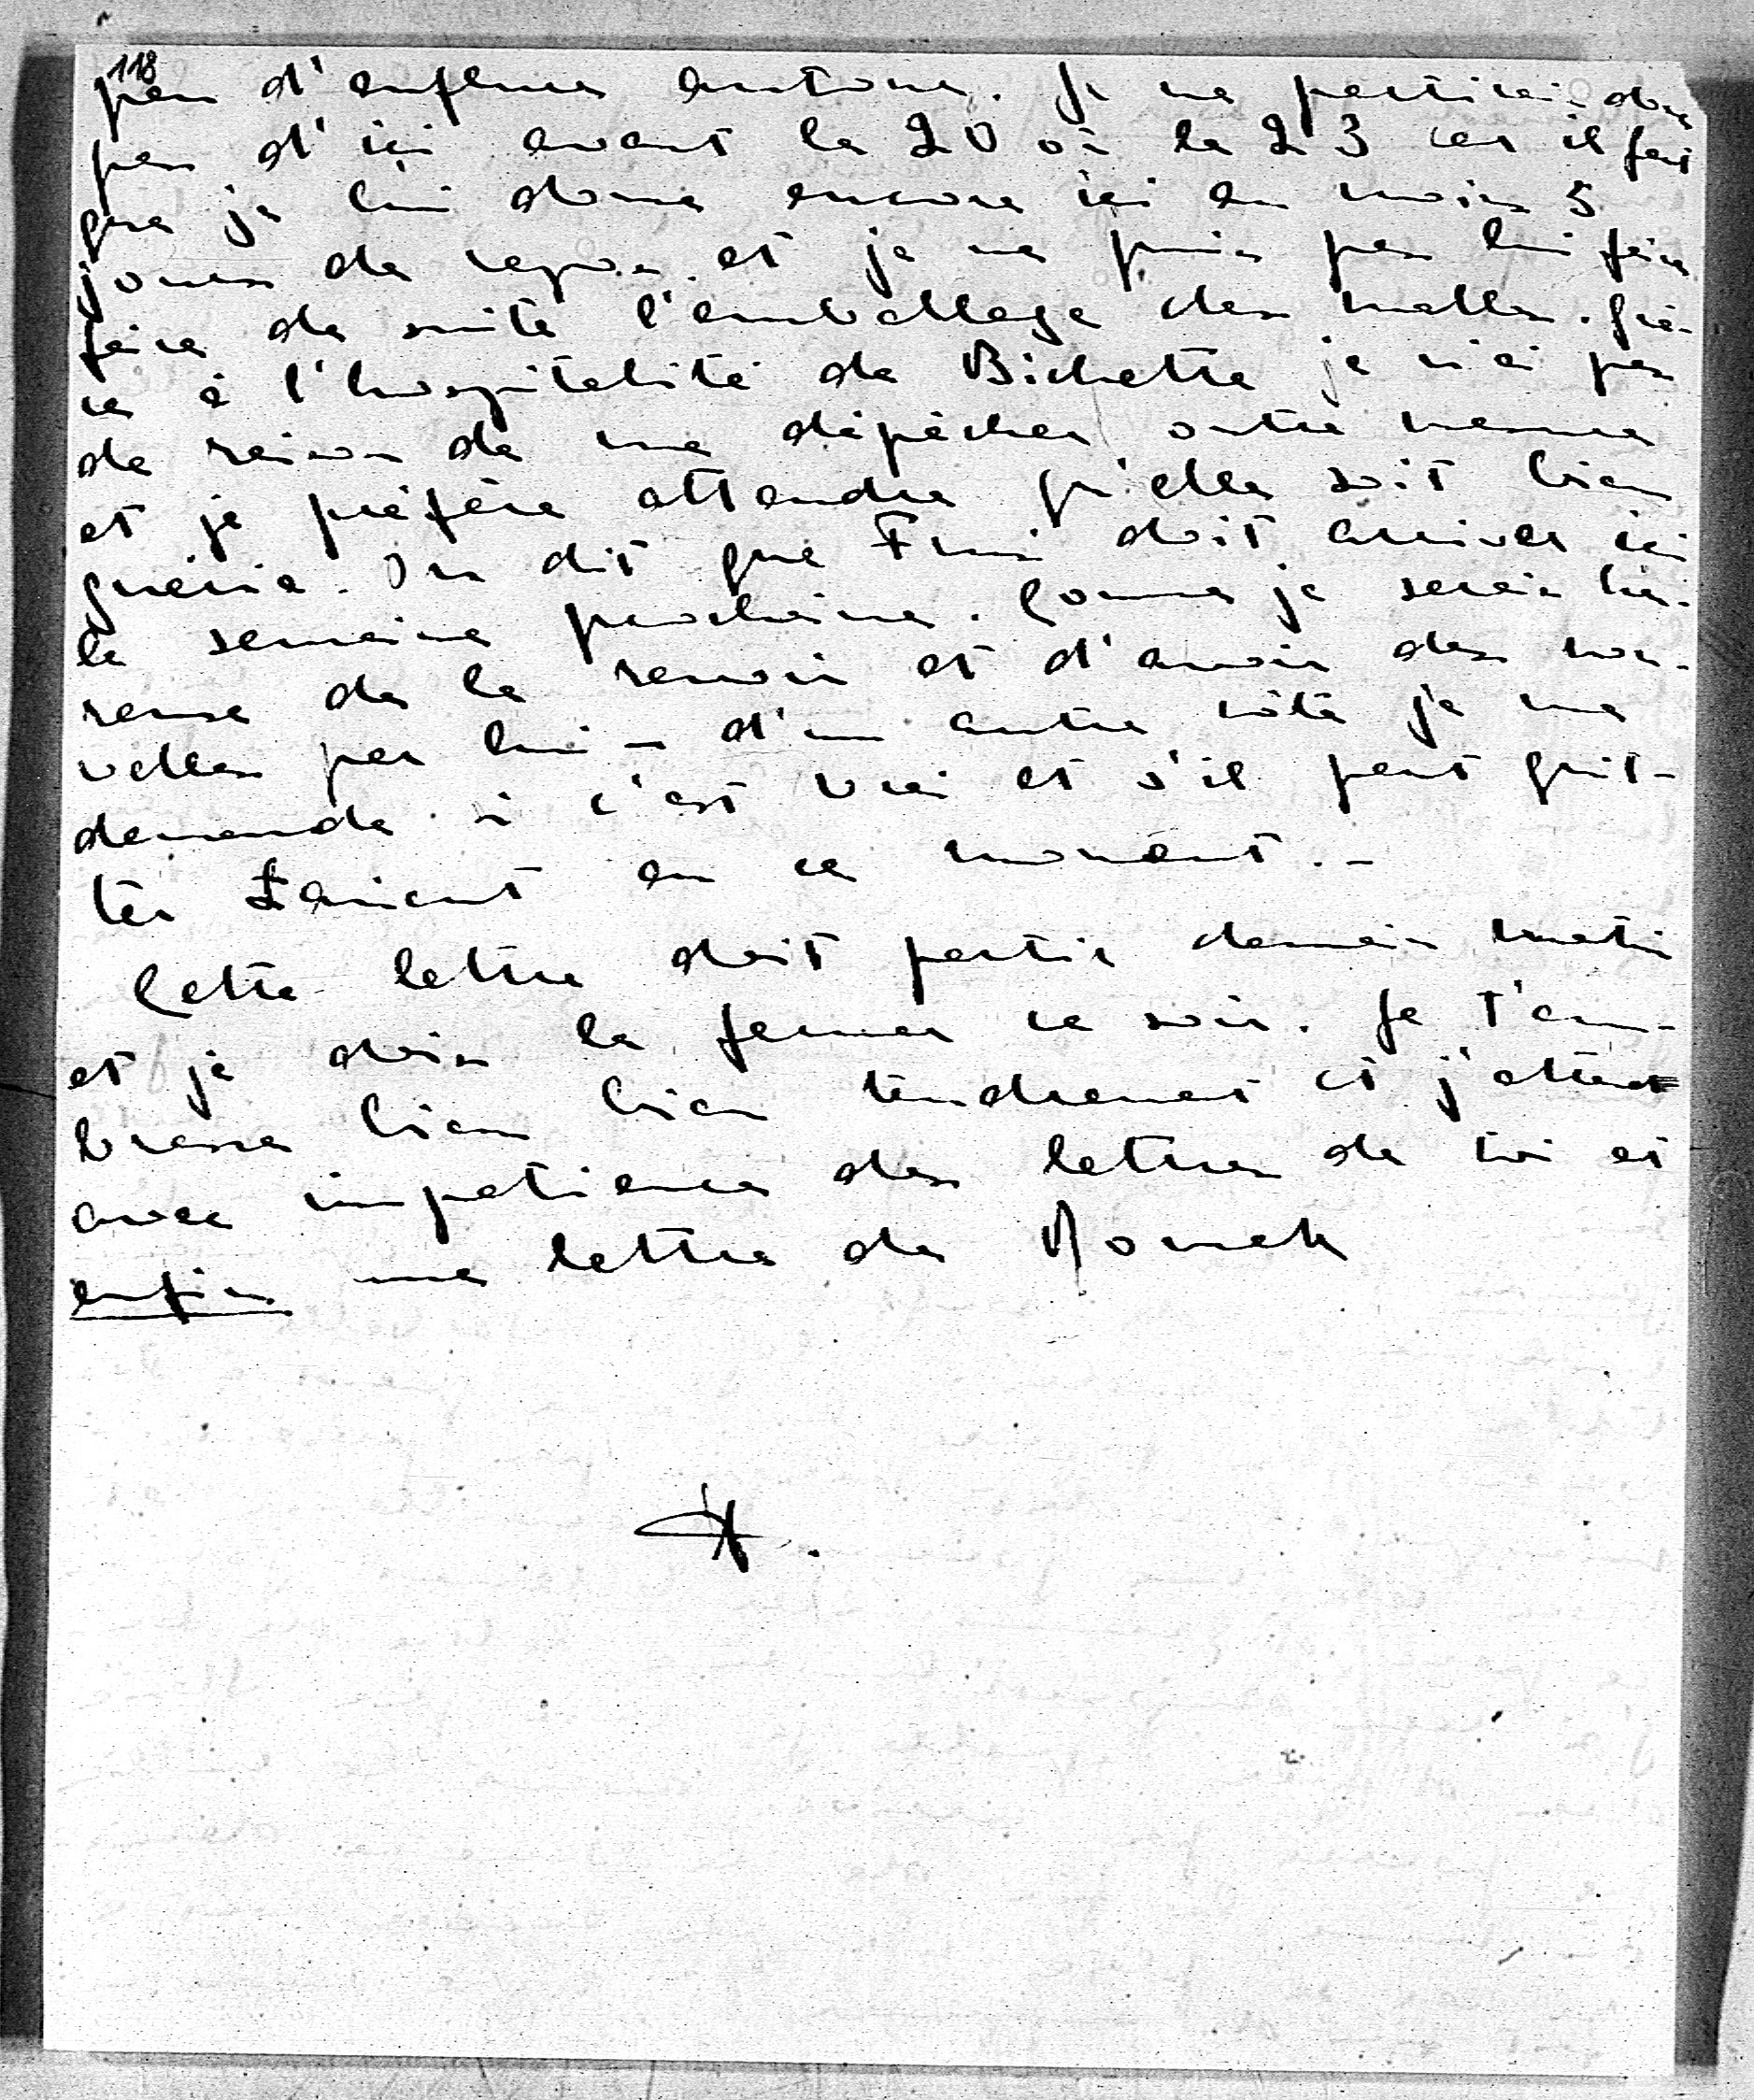 118
peu d'enflure autour. Je ne partirai donc
pas d'ici avant le 20 où le 23 car il faut
que je lui donne encore ici au moins 5
jours de repos et je ne puis pas lui faire
faire de suite l'emballage des malles. Grâ-
ce à l'hospitalité de Bichette je n'ai pas
de raison de me dépêcher outre mesure
et je préfère attendre qu'elle soit bien
guérie. On dit que doit arriver ici
la semaine prochaine. Comme je serais heu-
reuse de le revoir et d'avoir des nou-
velles par lui – d'un autre côté je me
demande si c'est vrai et s'il peut quit-
ter Łańcut en ce moment. –
Cette lettre doit partir demain matin
et je dois la fermer ce soir. Je t'em-
brasse bien bien tendrement et j'attends
avec impatience des lettres de toi et
enfin une lettre de Romek